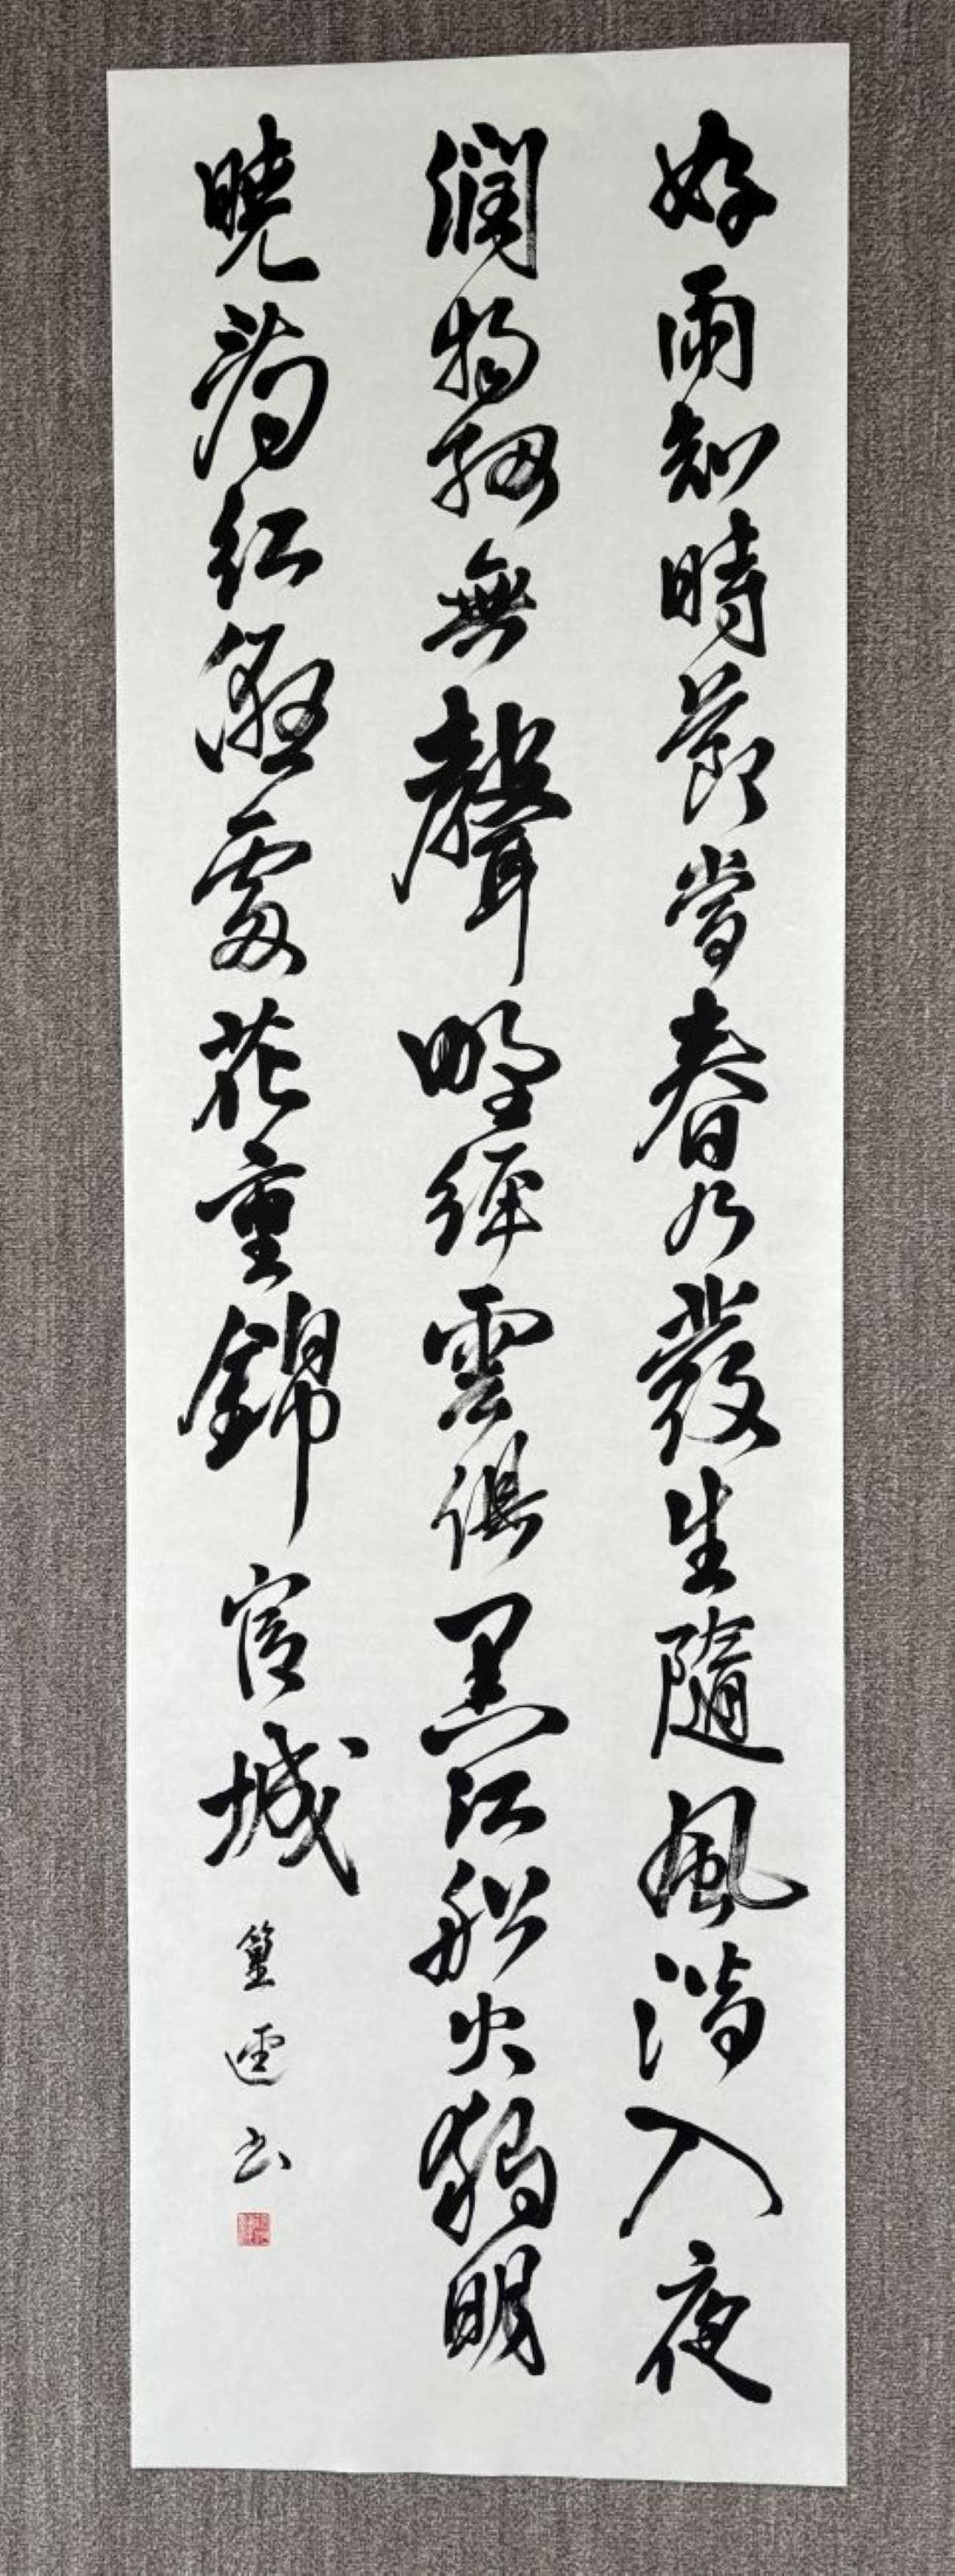 好雨知時節當春乃發生隨風潛入夜
潤物細無聲野徑雲俱黑江船火獨明
曉看紅濕處花重錦官城 篁 書